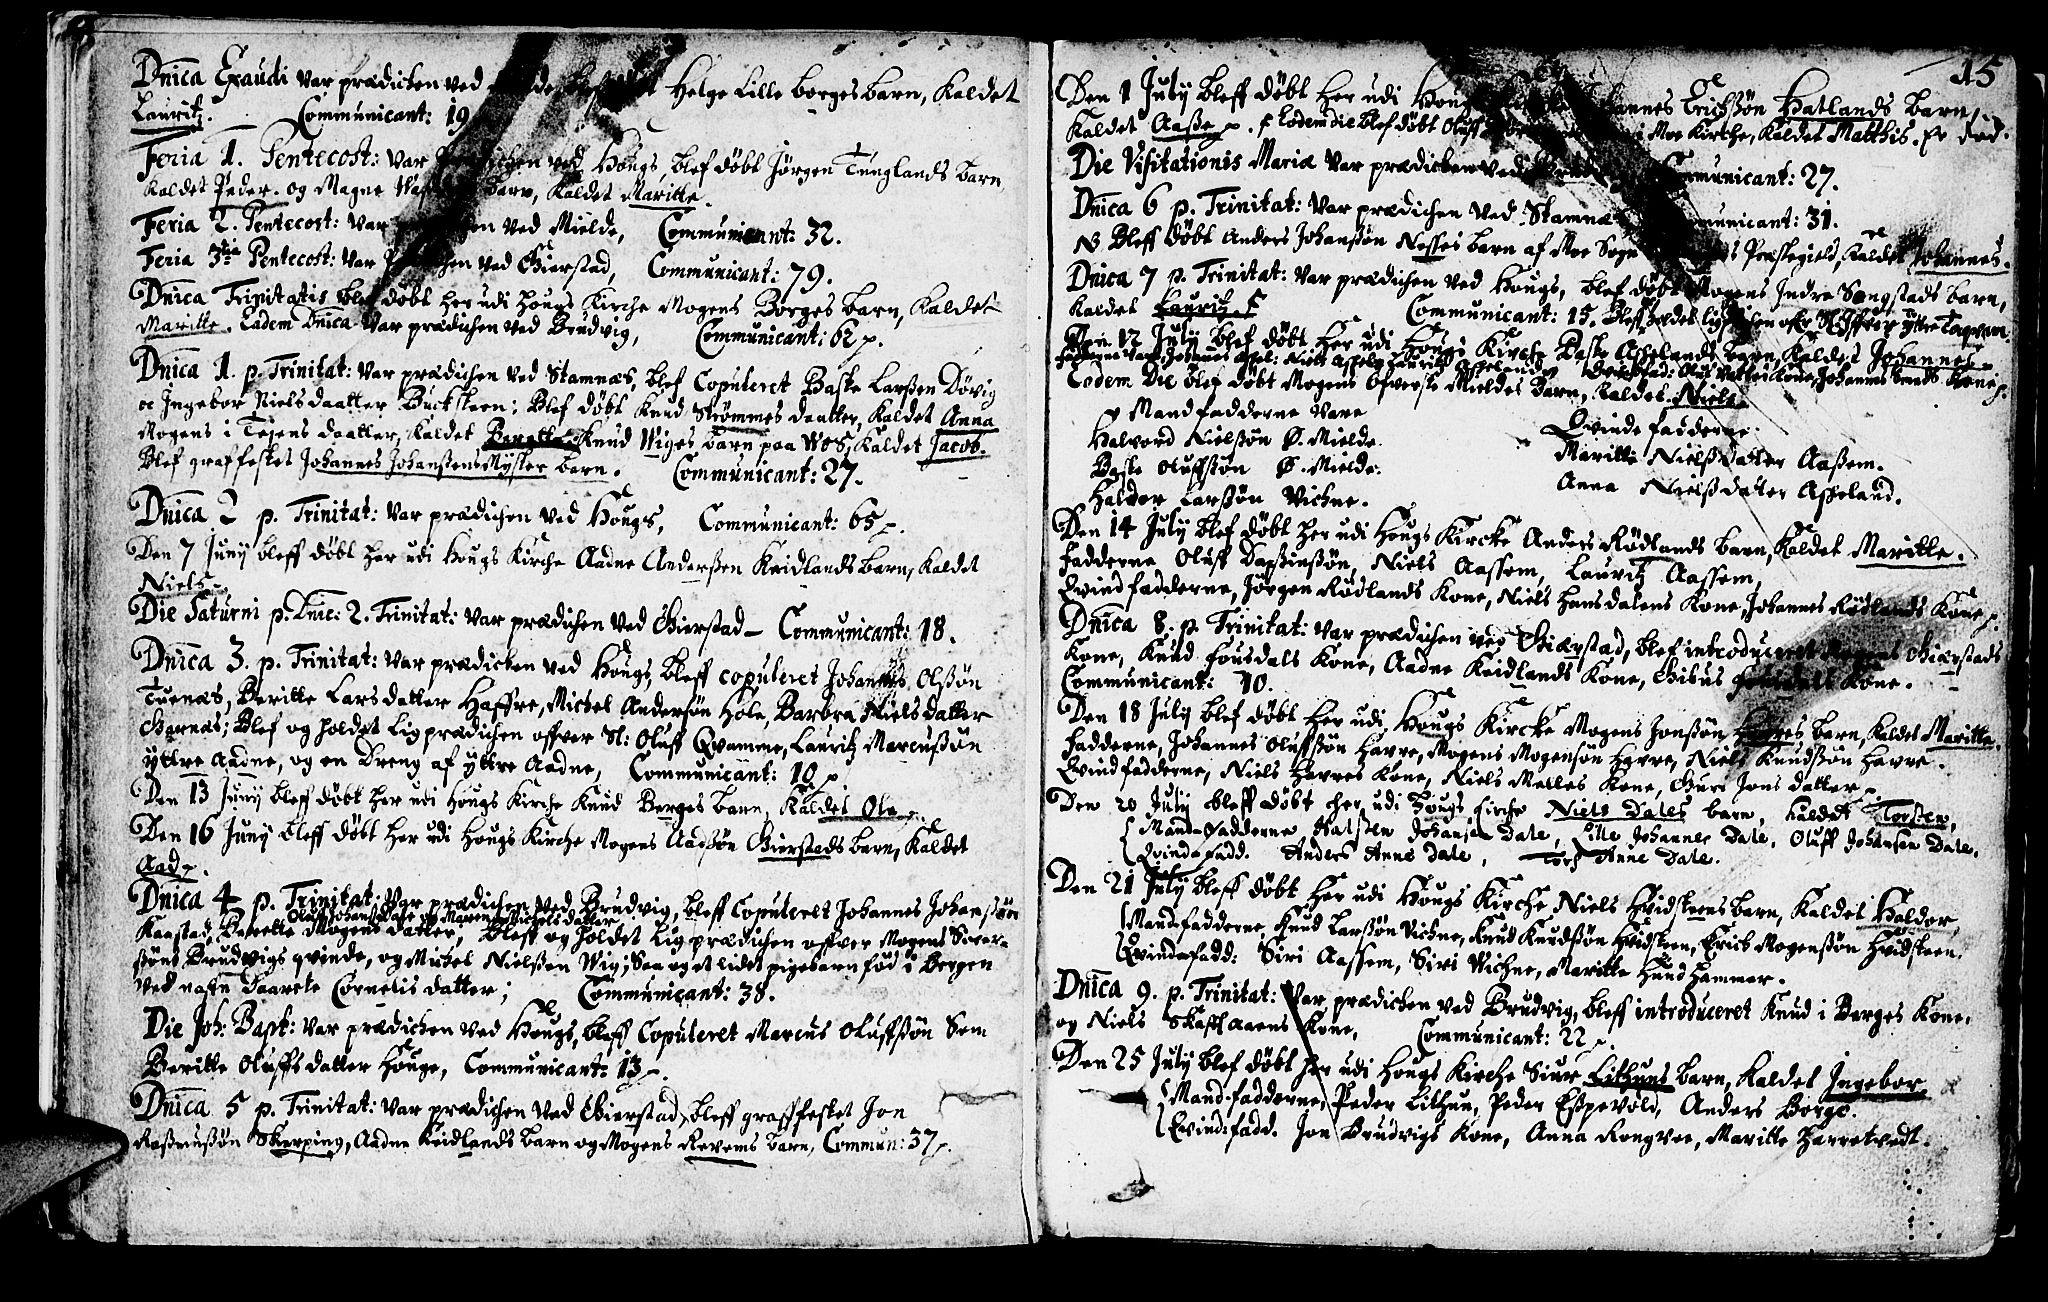 Dnica Exaudi var prædicken ved Helge Lille borges barn, Kaldet
Lauritz. Communicant: 19
Feria 1. Pentecost: var prædichen ved Hougs, blef døbt Jørgen Tunglands barn
kaldet Peder. og Magne barn, Kaldet Maritte.
Feria 2. Pentecost: var ved Mielde, Communicant: 32.
Feria 3tia Pentecost: var ved Gierstad, Communicant: 79.
Dnica Trinitatis blef døbt her udi Hougs Kirche Mogens Borges barn, Kaldet
Maritte. Eadem Dnica var prædichen ved Brudvig, Communicant: 62 p.
Dnica 1. p. Trinitat: var prædichen ved Stamnæs, blef Copuleret Baste Larssen Døvig
oc Ingebor Niels daatter Bucksteen; Blef døbt Knud Strømmes daatter, Kaldet Anna
Mogens i Tesens daatter, Kaldet Knud Wiges barn paa Wos, Kaldet Jacob.
Blef graffestet Johannes Johanssens Myster barn. Communicant: 27.
Dnica 2 p. Trinitat: var prædichen ved Hougs, Communicant: 65 p.
Den 7 Juny bleff døbt her udi Hougs Kirche Aadne Anderssen Keidlands barn, Kaldet
Niels.
Die Saturni p. Dnic: 2. Trinitat: var prædichen ved Gierstad Communicant: 18.
Dnica 3. p. Trinitat: var prædicken ved Hougs, bleff copuleret Johannes Olssøn
Tuenæs, Beritte Larsdatter Haffre, Michel Andersøn Hole, Barbra Nielsdatter
Garnæs; Blef og holdet Ligprædichen offver Sl: Oluff Qvamme, Lauritz Marcussøn
yttre Aadne, og en Dreng af yttre Aadne, Communicant: 10 p.
Den 13 Juny bleff døbt her udi Hougs Kirche Knud Berges barn, Kaldet Ole
Den 16 Juny bleff døbt her udi Hougs Kirche Mogens Gierstads barn, Kaldet
Aad
Dnica 4 p. Trinitat: Var prædichen ved Brudvig, bleff Copuleret Johannes Johanssøn
Oluff Johans Dale og Maren Michels datter
Kaastad, Beritte Mogens datter, bleff og holdet Ligprædichen offver Mogens Siver-
søns Brudvigs qvinde, og Michel Nielssen Wig; Saa og et lidet pigebarn fød i Bergen
ved naffn Saarete Cornelis datter; Communicant: 38.
Die Joh: Bapt: var prædichen ved Hougs, bleff Copuleret Marcus Oluffssøn Sem
Beritte Oluffs datter Houge, Communicant: 13 p.
Dnica 5 p. Trinitat: var prædichen ved Gierstad, bleff graffestet Jon
Rasmussøn Skerping, Aadne Keidlands barn og Mogens Revems barn, Commun: 37 p.
15
Den 1 July bleff døbt her udi Erichssøn Hatlands barn
Kaldet Aasse p. Eodem die blef døbt Oluff i Moe Kirche, Kaldet Matthis.
Die Visitationis Mariæ var prædicken ved Communicant: 27.
Dnica 6 p. Trinitat: var prædichen ved Stamnæs Communicant: 31.
NB Bleff døbt Anders Johanssøn Nesses barn af Moe Sogn Præstegield, Kaldet Johannes.
Dnica 7 p. Trinitat: var prædichen ved Hougs, blef døbt Mogens Indre Songstads barn,
Kaldet Lauritz. Communicant: 15. Bleff holdet yttre
Den 12 July blef døbt her udi Hougs Kirche Baste Aspelands barn, Kaldet Johannes
Eodem Die blef døbt Mogens Øfverste Mieldes Barn, Kaldet Niels.
Mandfadderne vare
Halvord Nielssøn Ø. Mielde
Baste Oluffssøn Ø. Mielde.
Haldor Larssøn Vichne.
Qvinde fadderne.
Maritte Nielssdatter Aassem.
Anna Nielssdatter Aspeland.
Den 14 July blef døbt her udi Hougs Kircke Anders Rødlands barn, Kaldet Maritte.
Fadderne Oluff Niels Aassem, Lauritz Aassem,
Qvindfadderne, Jørgen Rødlands Kone, Niels Hansdalens Kone Johannes Rødlands Kone p.
Dnica 8. p. Trinitat: var prædichen ved Gierstad, blef introduceret Mogens Gierstads
Kone, Knud Fousdals Kone, Aadne Keidlands Kone, Gitus Kone.
Communicant: 10.
Den 18 July blef døbt her udi Hougs Kircke Mogens Jonssøn Havres barn, Kaldet Maritta.
Fadderne, Johannes Oluffssøn Havre, Mogens Mogensøn Havre, Niels Knudssøn Havre.
Qvindfadderne, Niels Havres Kone, Niels Melles Kone, Guro Jons datter
Den 20 July bleff døbt her udi Hougs Kirche Niels Dales barn, kaldet Torsten,
Mand-fadderne Halssten Johansen Dale, Lille Johannes Dale, Oluff Johansen Dale.
Qvinde fadd. Anders Anne Dale, Tors Anne Dale.
Den 21 July bleff døbt her udi Hougs Kirche Niels Hvidsteens barn, Kaldet Haldor,
Mandfadderne, Knud Larssøn Vichne, Knud Knudssøn Hvidsteen, Erich Mogenssøn Hvidsteen.
Qvindefadd: Siri Aassem, Siri Vichne, Maritte Hundhammer.
Dnica 9. p. Trinitat: var prædicken ved Brudvig, bleff introduceret Knud i Berges Kone,
og Niels Skafftaaens Kone, Communicant: 22 p.
Den 25 July blef døbt her udi Hougs Kirche Siur Lithuns barn, Kaldet Ingebor
Mand-fadderne, Peder Lithun, Peder Esspevold, Anders Borge.
Qvindefadd. Jon Brudvigs Kone, Anna Rongvee, Maritte Harretvedt.